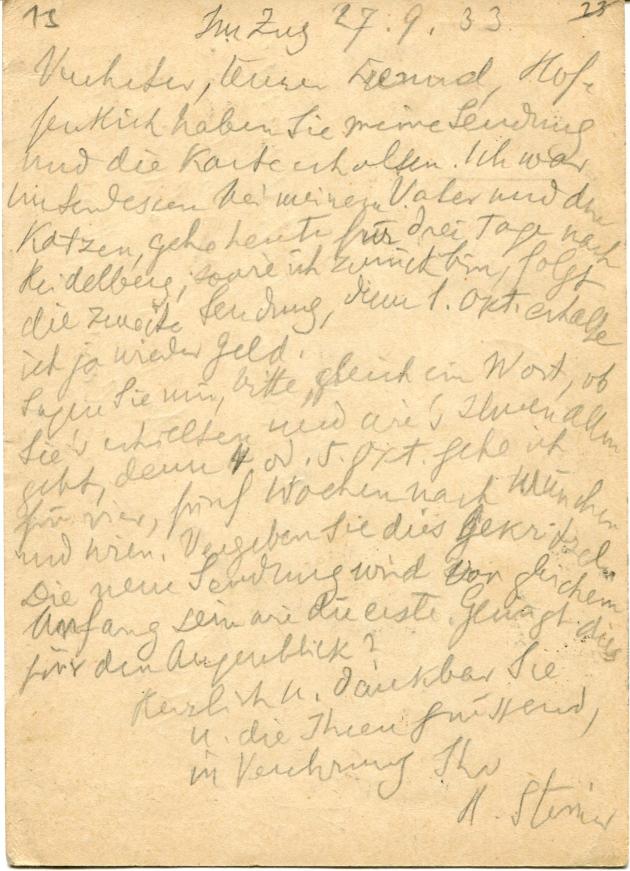 13 Im Zug 27.9.33. 23
Verehrter, teurer Freund, Hof-
fentlich haben Sie meine Sendung
und die Karte erhalten. Ich war
unterdessen bei meinem Vater und den
Katzen, gehe heute für drei Tage nach
Heidelberg; sowie ich zurück bin, folgt
die zweite Sendung, denn 1. Okt. erhalte
ich ja wieder Geld.
Sagen Sie mir, bitte, gleich ein Wort, ob
Sie's erhielten und wie's Ihnen allen
geht, denn 4. od. 5. Okt. gehe ich
für vier, fünf Wochen nach München
und Wien. Vergeben Sie dies Gekritzel.
Die neue Sendung wird von gleichem
Umfang sein wie die erste. Genügt dies
für den Augenblick?
Herzlich u. dankbar Sie
u. die Ihren grüssend,
in Verehrung Ihr
H. Steiner